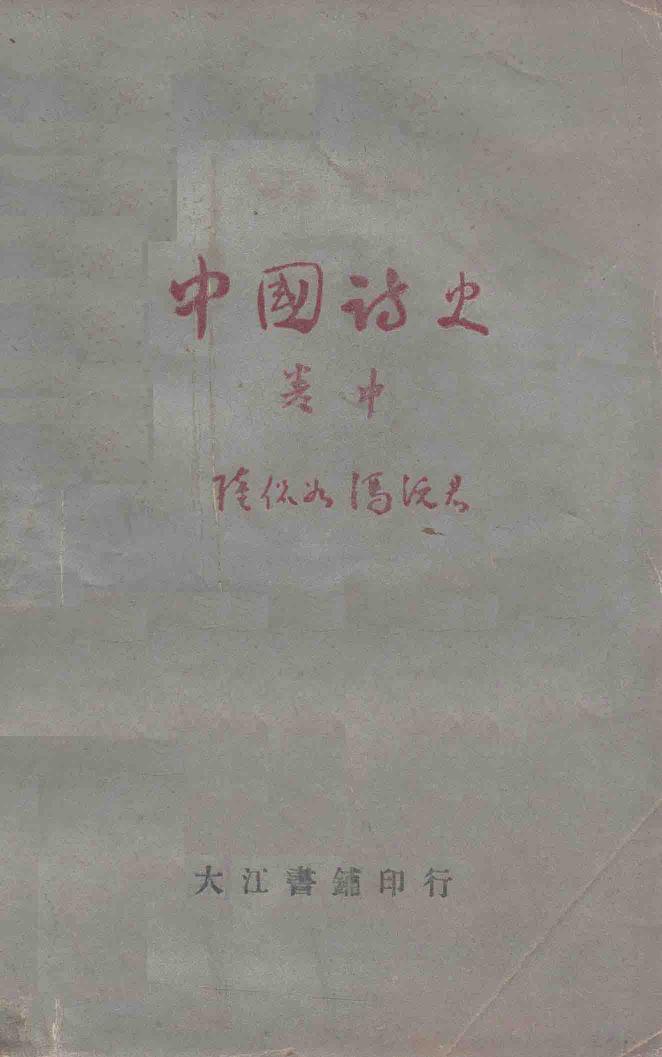 中國詩史
卷中
陸侃如 馮沅君
大江書鋪印行